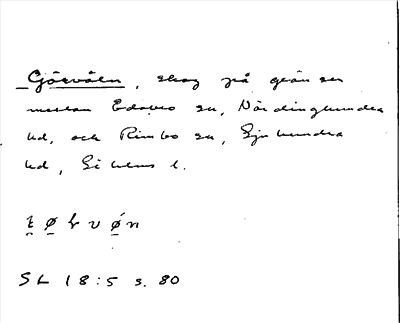 Görvåln, skog på gränsen
mellan Edsbro sn, Närdinghundra
hd, och Rimbo sn, Sjuhundra
hd, Sthlms l.
SL 18:5 s. 80